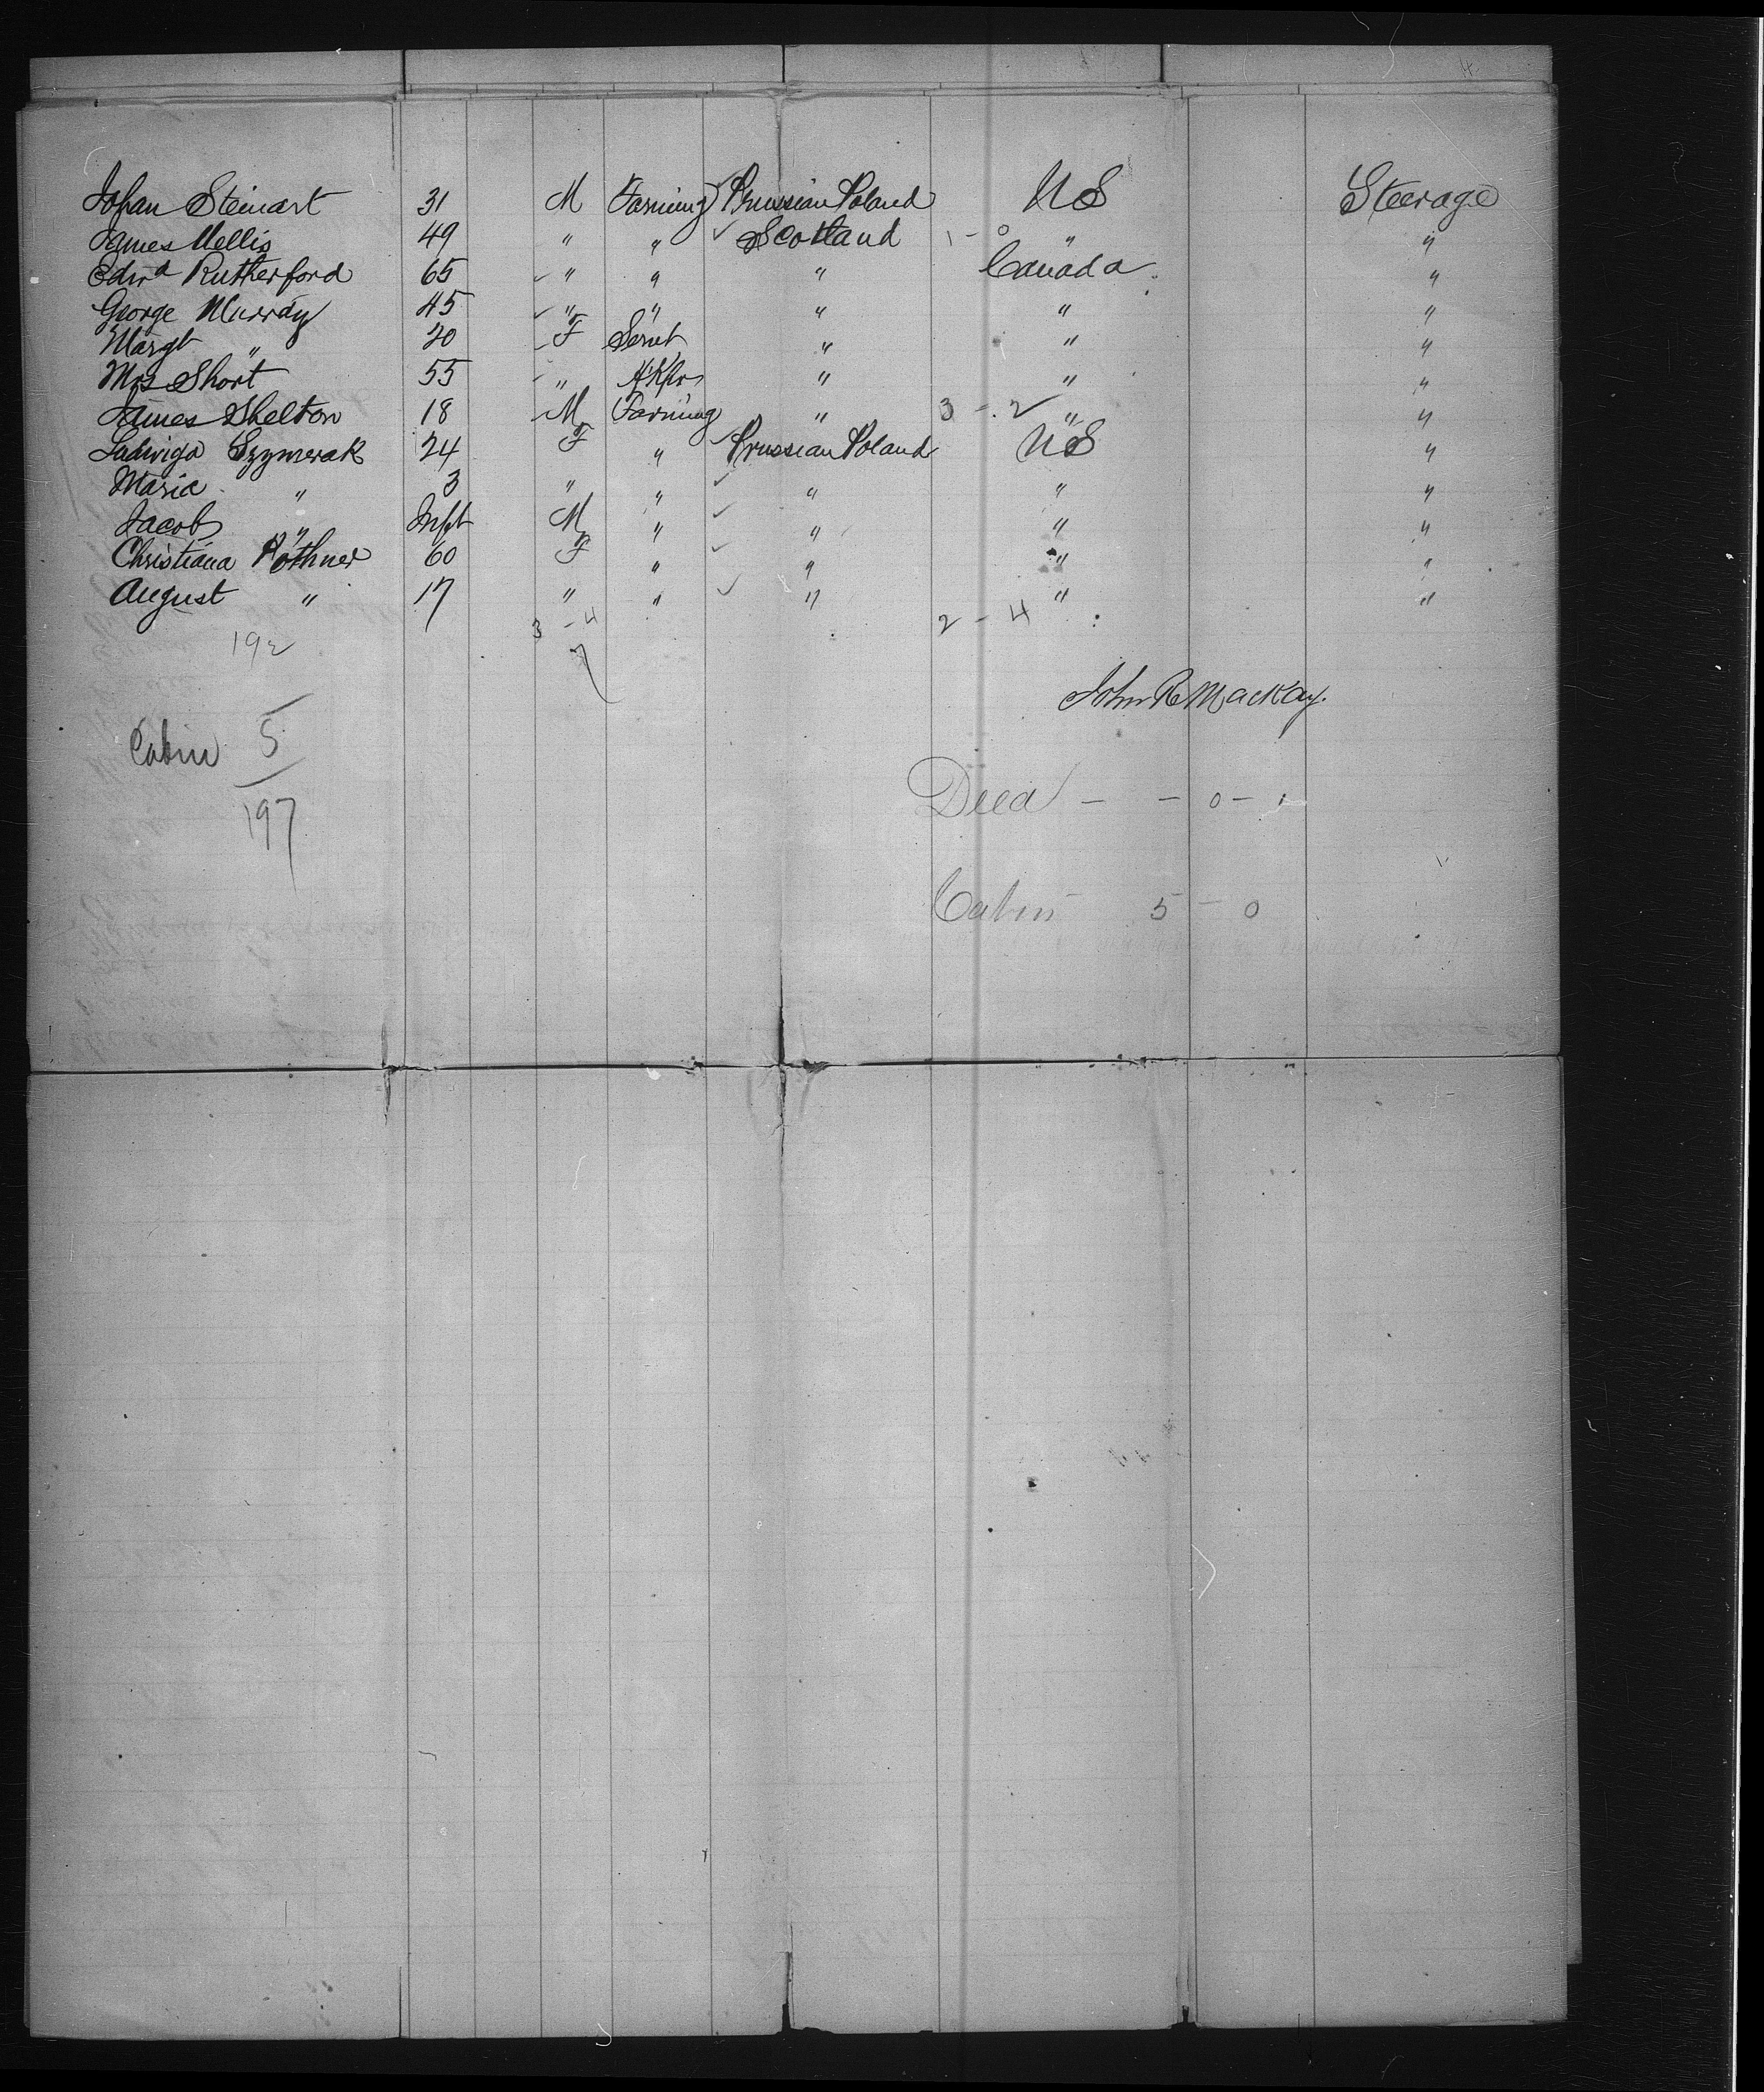 Johan Steinart 31 M Farming Prussian Poland US Steerage
James Mellis 49 " " Scotland 1 - 0 " "
Edwd Rutherford 65 " " " Canada "
George Murray 45 " " " " "
Margt " 20 F Servt " " "
Mrs Short 55 " HKpr " " "
James Shelton 18 M Farming " 3 - 2 " "
Ladwiga Szymerak 24 F " Prussian Poland US "
Maria " 3 " " " " "
Jacob " Inft M " " " "
Christiana Pöthner 60 F " " " "
August " 17 " " " " "
3 - 4 2 - 4
192 7
John R Mackay.
Cabin 5
Died - - 0 - 1
197
Cabin 5 - 0